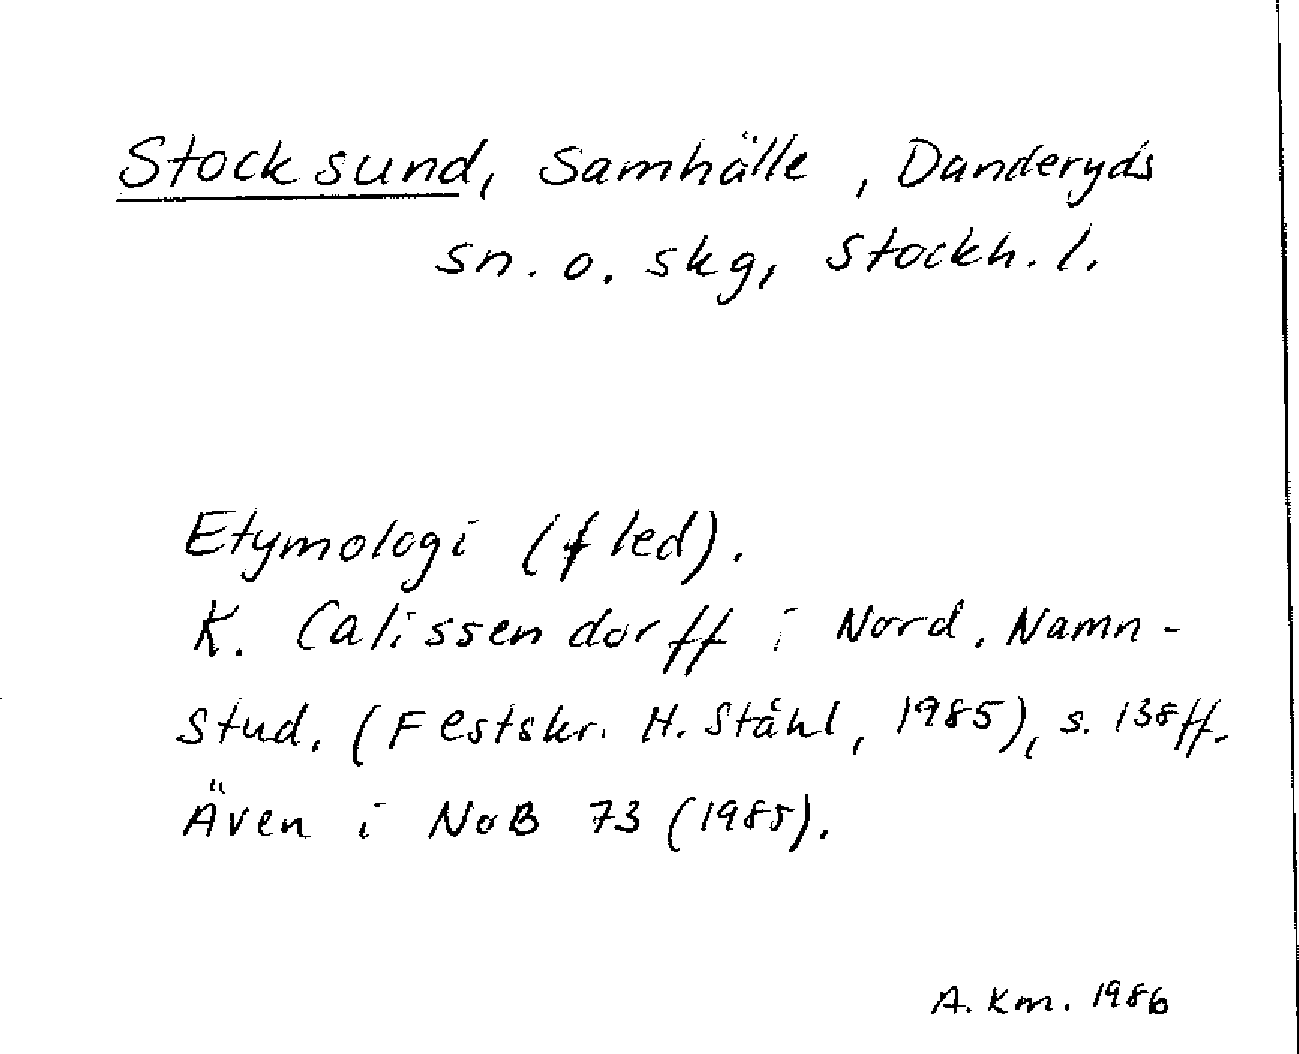 Stocksund, Samhälle, Danderyds
sn. o. skg, Stockh. l.
Etymologi (f led).
K. Calissendorff i Nord. Namn-
Stud. (Festskr. H. Ståhl, 1985), s. 138ff.
Även i NoB 73 (1985).
A. Km. 1986